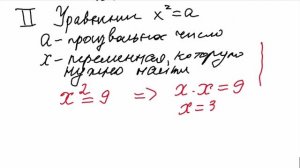 II Уравнения x²=a
a - произвольное число
x - переменная, которую
нужно найти
x²=9 => x·x=9
x=3